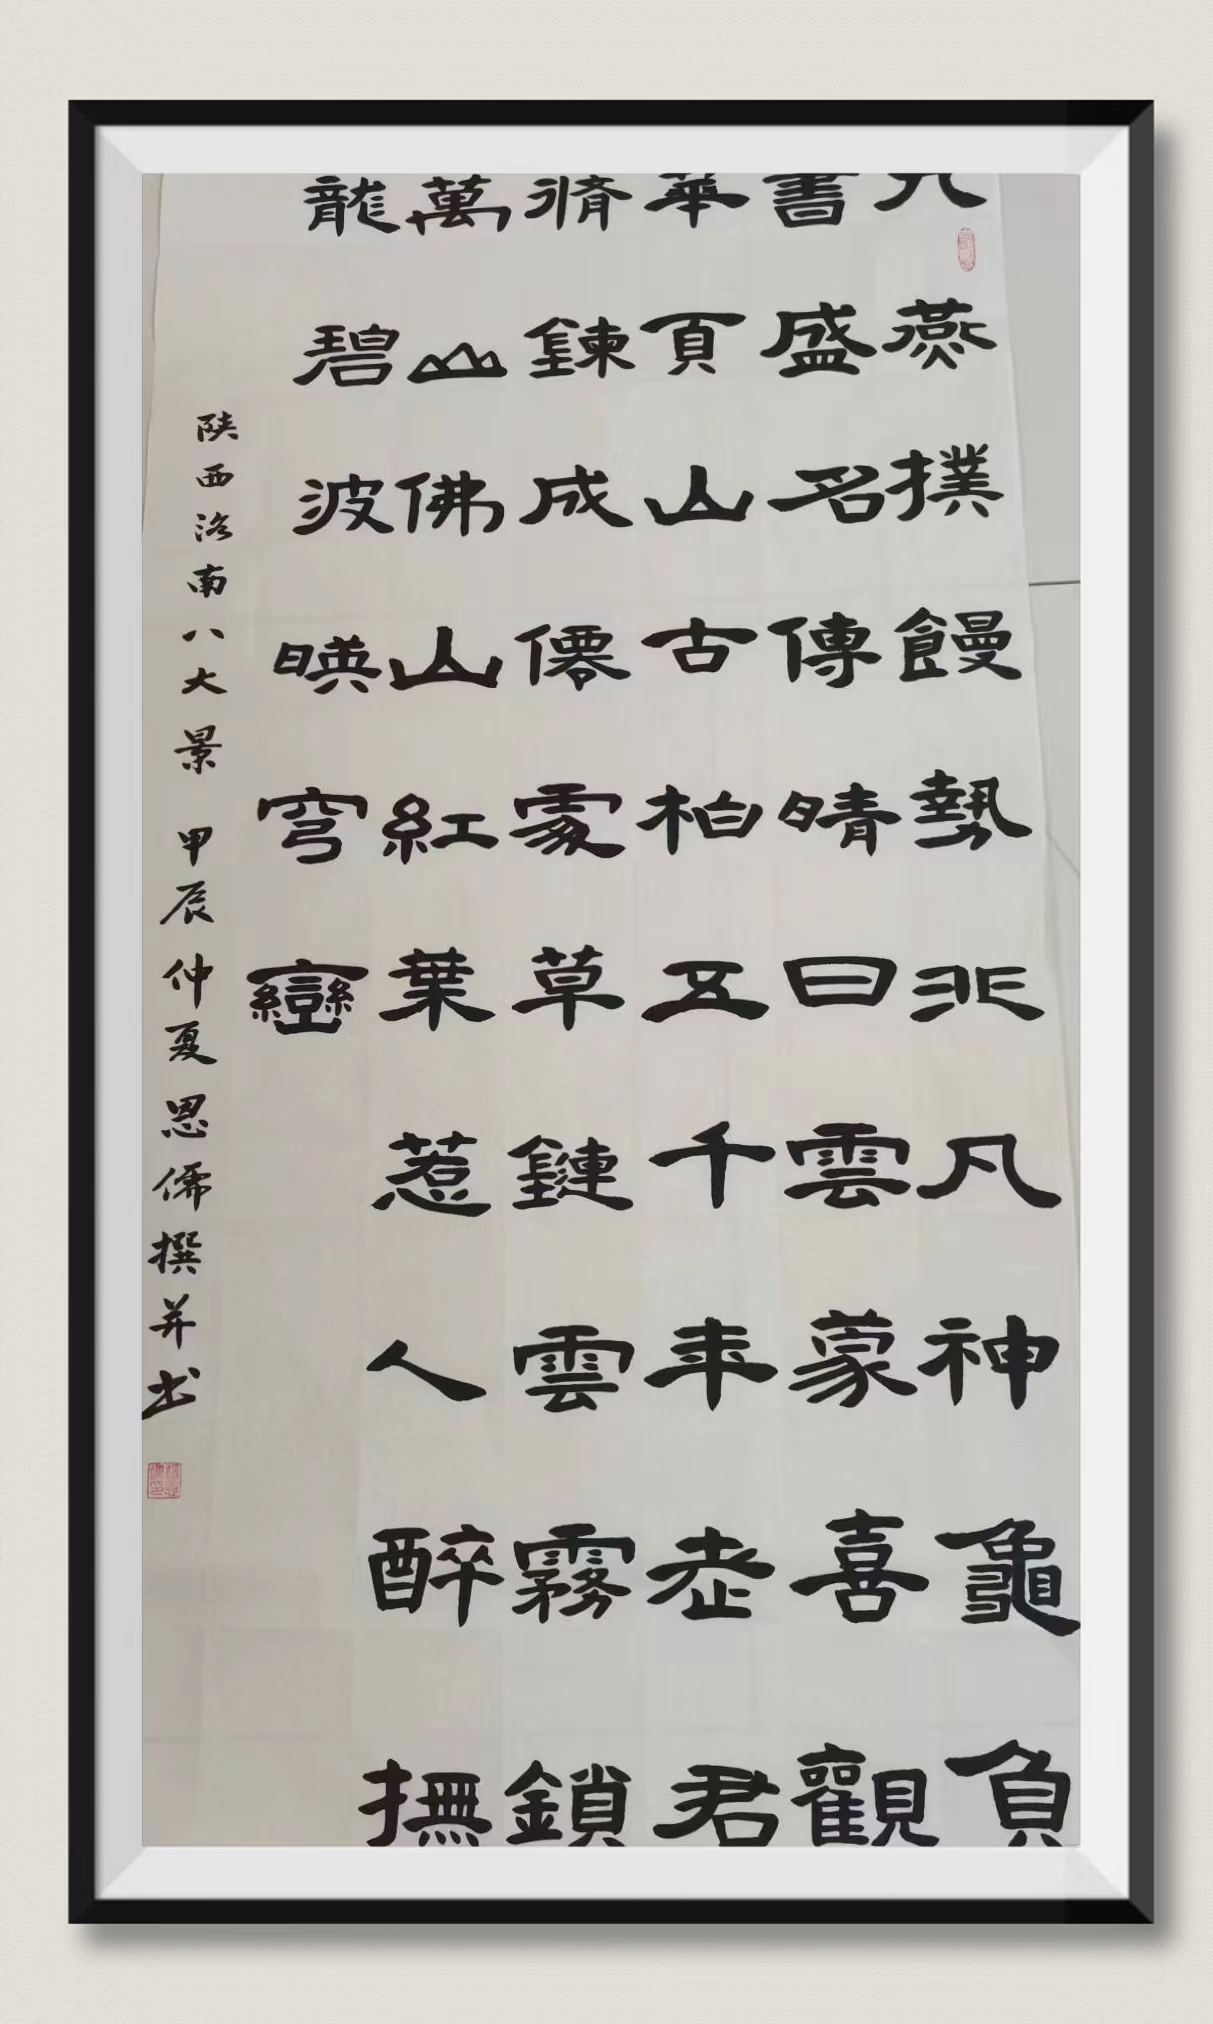 九燕撲饅勢非凡神龜負
書盛名傳晴曰雲蒙喜觀
華頁山古柏五千年老君
脩鍊成僊處草鏈雲霧鎖
萬山佛山紅葉惹人醉撫
龍碧波暎穹巒
陕西洛南八大景 甲辰仲夏思儒撰并书